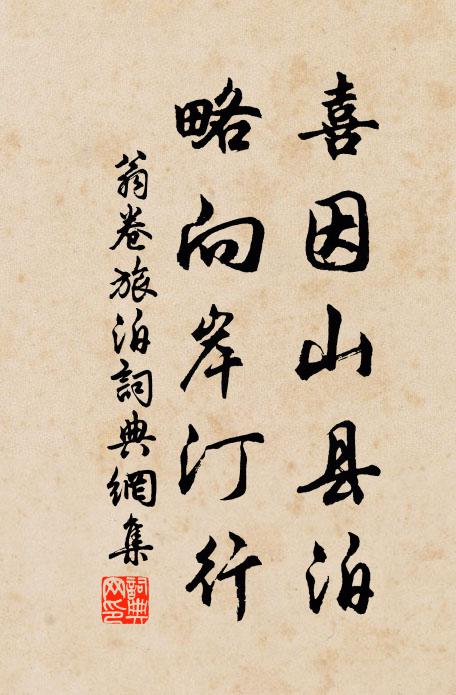 喜因山县泊
略向岸汀行
翁卷旅泊詞典網集
詞典網印